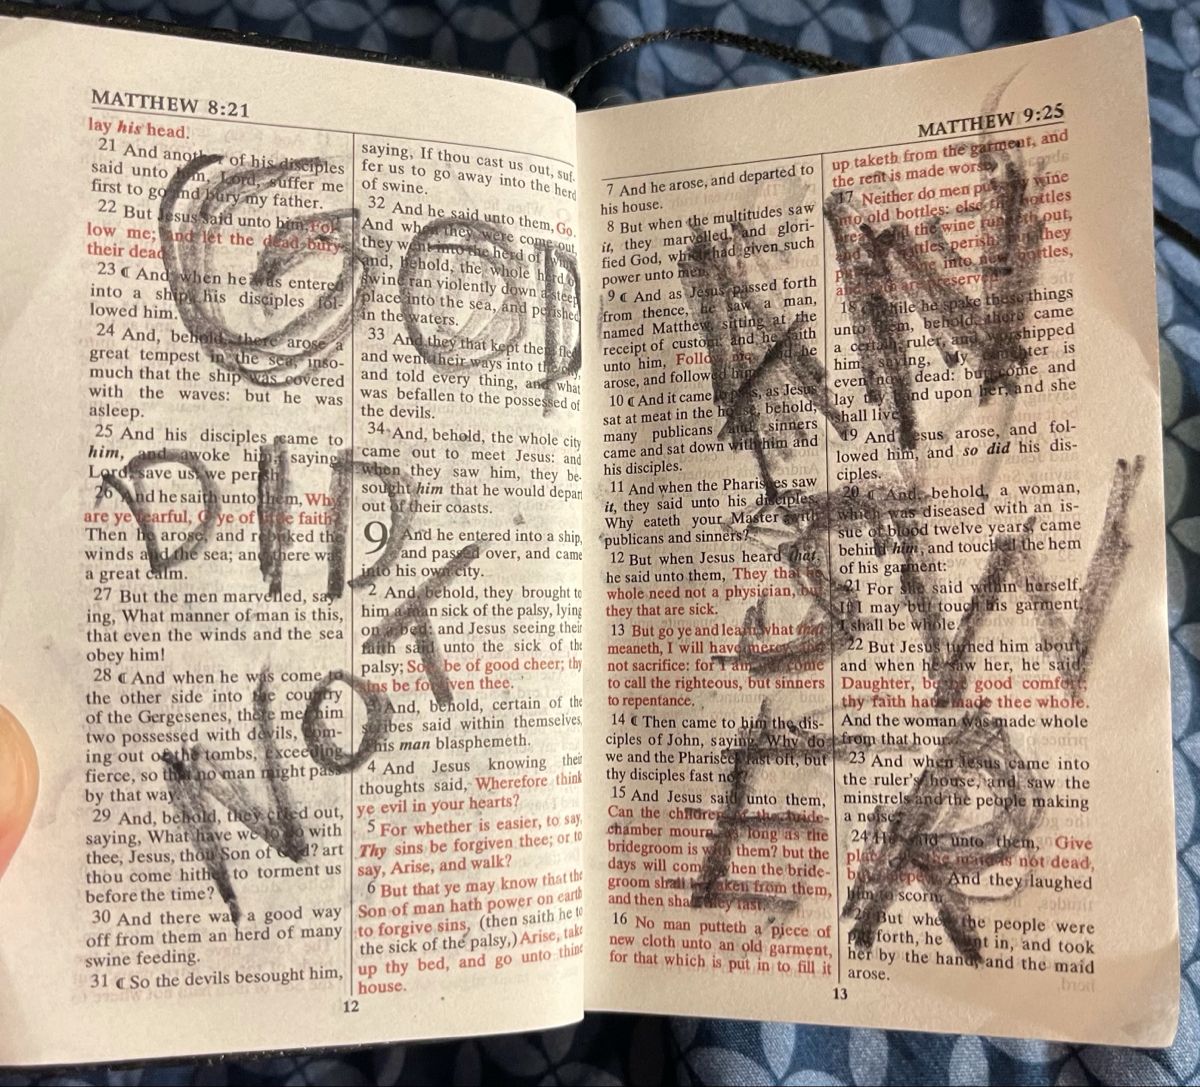 MATTHEW 8:21
lay his head.
21 And another of his disciples
said unto him, Lord, suffer me
first to go and bury my father.
22 But Jesus said unto him, Fol-
low me; and let the dead bury
their dead.
23 ¶ And when he was entered
into a ship, his disciples fol-
lowed him.
24 And, behold, there arose a
great tempest in the sea, inso-
much that the ship was covered
with the waves: but he was
asleep.
25 And his disciples came to
him, and awoke him, saying,
Lord, save us: we perish.
26 And he saith unto them, Why
are ye fearful, O ye of little faith?
Then he arose, and rebuked the
winds and the sea; and there was
a great calm.
27 But the men marvelled, say-
ing, What manner of man is this,
that even the winds and the sea
obey him!
28 ¶ And when he was come to
the other side into the country
of the Gergesenes, there met him
two possessed with devils, com-
ing out of the tombs, exceeding
fierce, so that no man might pass
by that way.
29 And, behold, they cried out,
saying, What have we to do with
thee, Jesus, thou Son of God? art
thou come hither to torment us
before the time?
30 And there was a good way
off from them an herd of many
swine feeding.
31 ¶ So the devils besought him,
saying, If thou cast us out, suf-
fer us to go away into the herd
of swine.
32 And he said unto them, Go.
And when they were come out,
they went into the herd of swine:
and, behold, the whole herd of
swine ran violently down a steep
place into the sea, and perished
in the waters.
33 And they that kept them fled,
and went their ways into the city,
and told every thing, and what
was befallen to the possessed of
the devils.
34 And, behold, the whole city
came out to meet Jesus: and
when they saw him, they be-
sought him that he would depart
out of their coasts.
9 And he entered into a ship,
and passed over, and came
into his own city.
2 And, behold, they brought to
him a man sick of the palsy, lying
on a bed: and Jesus seeing their
faith said unto the sick of the
palsy; Son, be of good cheer; thy
sins be forgiven thee.
3 And, behold, certain of the
scribes said within themselves,
This man blasphemeth.
4 And Jesus knowing their
thoughts said, Wherefore think
ye evil in your hearts?
5 For whether is easier, to say,
Thy sins be forgiven thee; or to
say, Arise, and walk?
6 But that ye may know that the
Son of man hath power on earth
to forgive sins, (then saith he to
the sick of the palsy,) Arise, take
up thy bed, and go unto thine
house.
12
GOD
DID
NOT
MATTHEW 9:25
7 And he arose, and departed to
his house.
8 But when the multitudes saw
it, they marvelled, and glori-
fied God, which had given such
power unto men.
9 ¶ And as Jesus passed forth
from thence, he saw a man,
named Matthew, sitting at the
receipt of custom: and he saith
unto him, Follow me. And he
arose, and followed him.
10 ¶ And it came to pass, as Jesus
sat at meat in the house, behold,
many publicans and sinners
came and sat down with him and
his disciples.
11 And when the Pharisees saw
it, they said unto his disciples,
Why eateth your Master with
publicans and sinners?
12 But when Jesus heard that,
he said unto them, They that be
whole need not a physician, but
they that are sick.
13 But go ye and learn what that
meaneth, I will have mercy, and
not sacrifice: for I am not come
to call the righteous, but sinners
to repentance.
14 ¶ Then came to him the dis-
ciples of John, saying, Why do
we and the Pharisees fast oft, but
thy disciples fast not?
15 And Jesus said unto them,
Can the children of the bride-
chamber mourn, as long as the
bridegroom is with them? but the
days will come, when the bride-
groom shall be taken from them,
and then shall they fast.
16 No man putteth a piece of
new cloth unto an old garment,
for that which is put in to fill it
up taketh from the garment, and
the rent is made worse.
17 Neither do men put new wine
into old bottles: else the bottles
break, and the wine runneth out,
and the bottles perish: but they
put new wine into new bottles,
and both are preserved.
18 ¶ While he spake these things
unto them, behold, there came
a certain ruler, and worshipped
him, saying, My daughter is
even now dead: but come and
lay thy hand upon her, and she
shall live.
19 And Jesus arose, and fol-
lowed him, and so did his dis-
ciples.
20 ¶ And, behold, a woman,
which was diseased with an is-
sue of blood twelve years, came
behind him, and touched the hem
of his garment:
21 For she said within herself,
If I may but touch his garment,
I shall be whole.
22 But Jesus turned him about,
and when he saw her, he said,
Daughter, be of good comfort;
thy faith hath made thee whole.
And the woman was made whole
from that hour.
23 And when Jesus came into
the ruler's house, and saw the
minstrels and the people making
a noise,
24 He said unto them, Give
place: for the maid is not dead,
but sleepeth. And they laughed
him to scorn.
25 But when the people were
put forth, he went in, and took
her by the hand, and the maid
arose.
13
AN
SW
ER